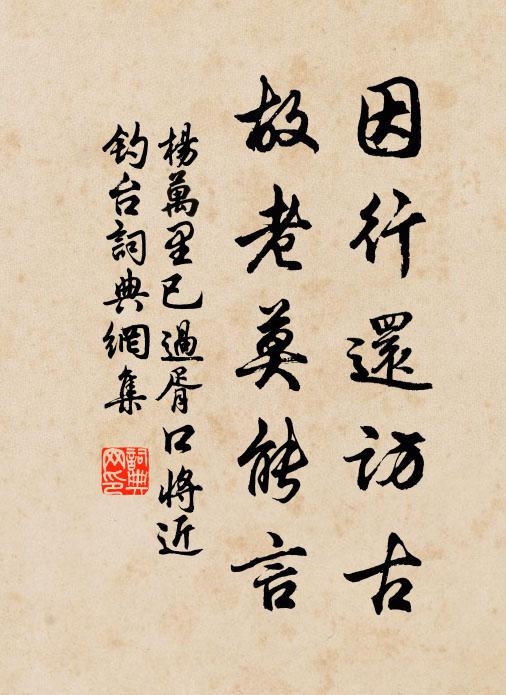 因行還訪古
故老莫能言
楊萬里已過胥口將近
釣台詞典網集
詞典
网印